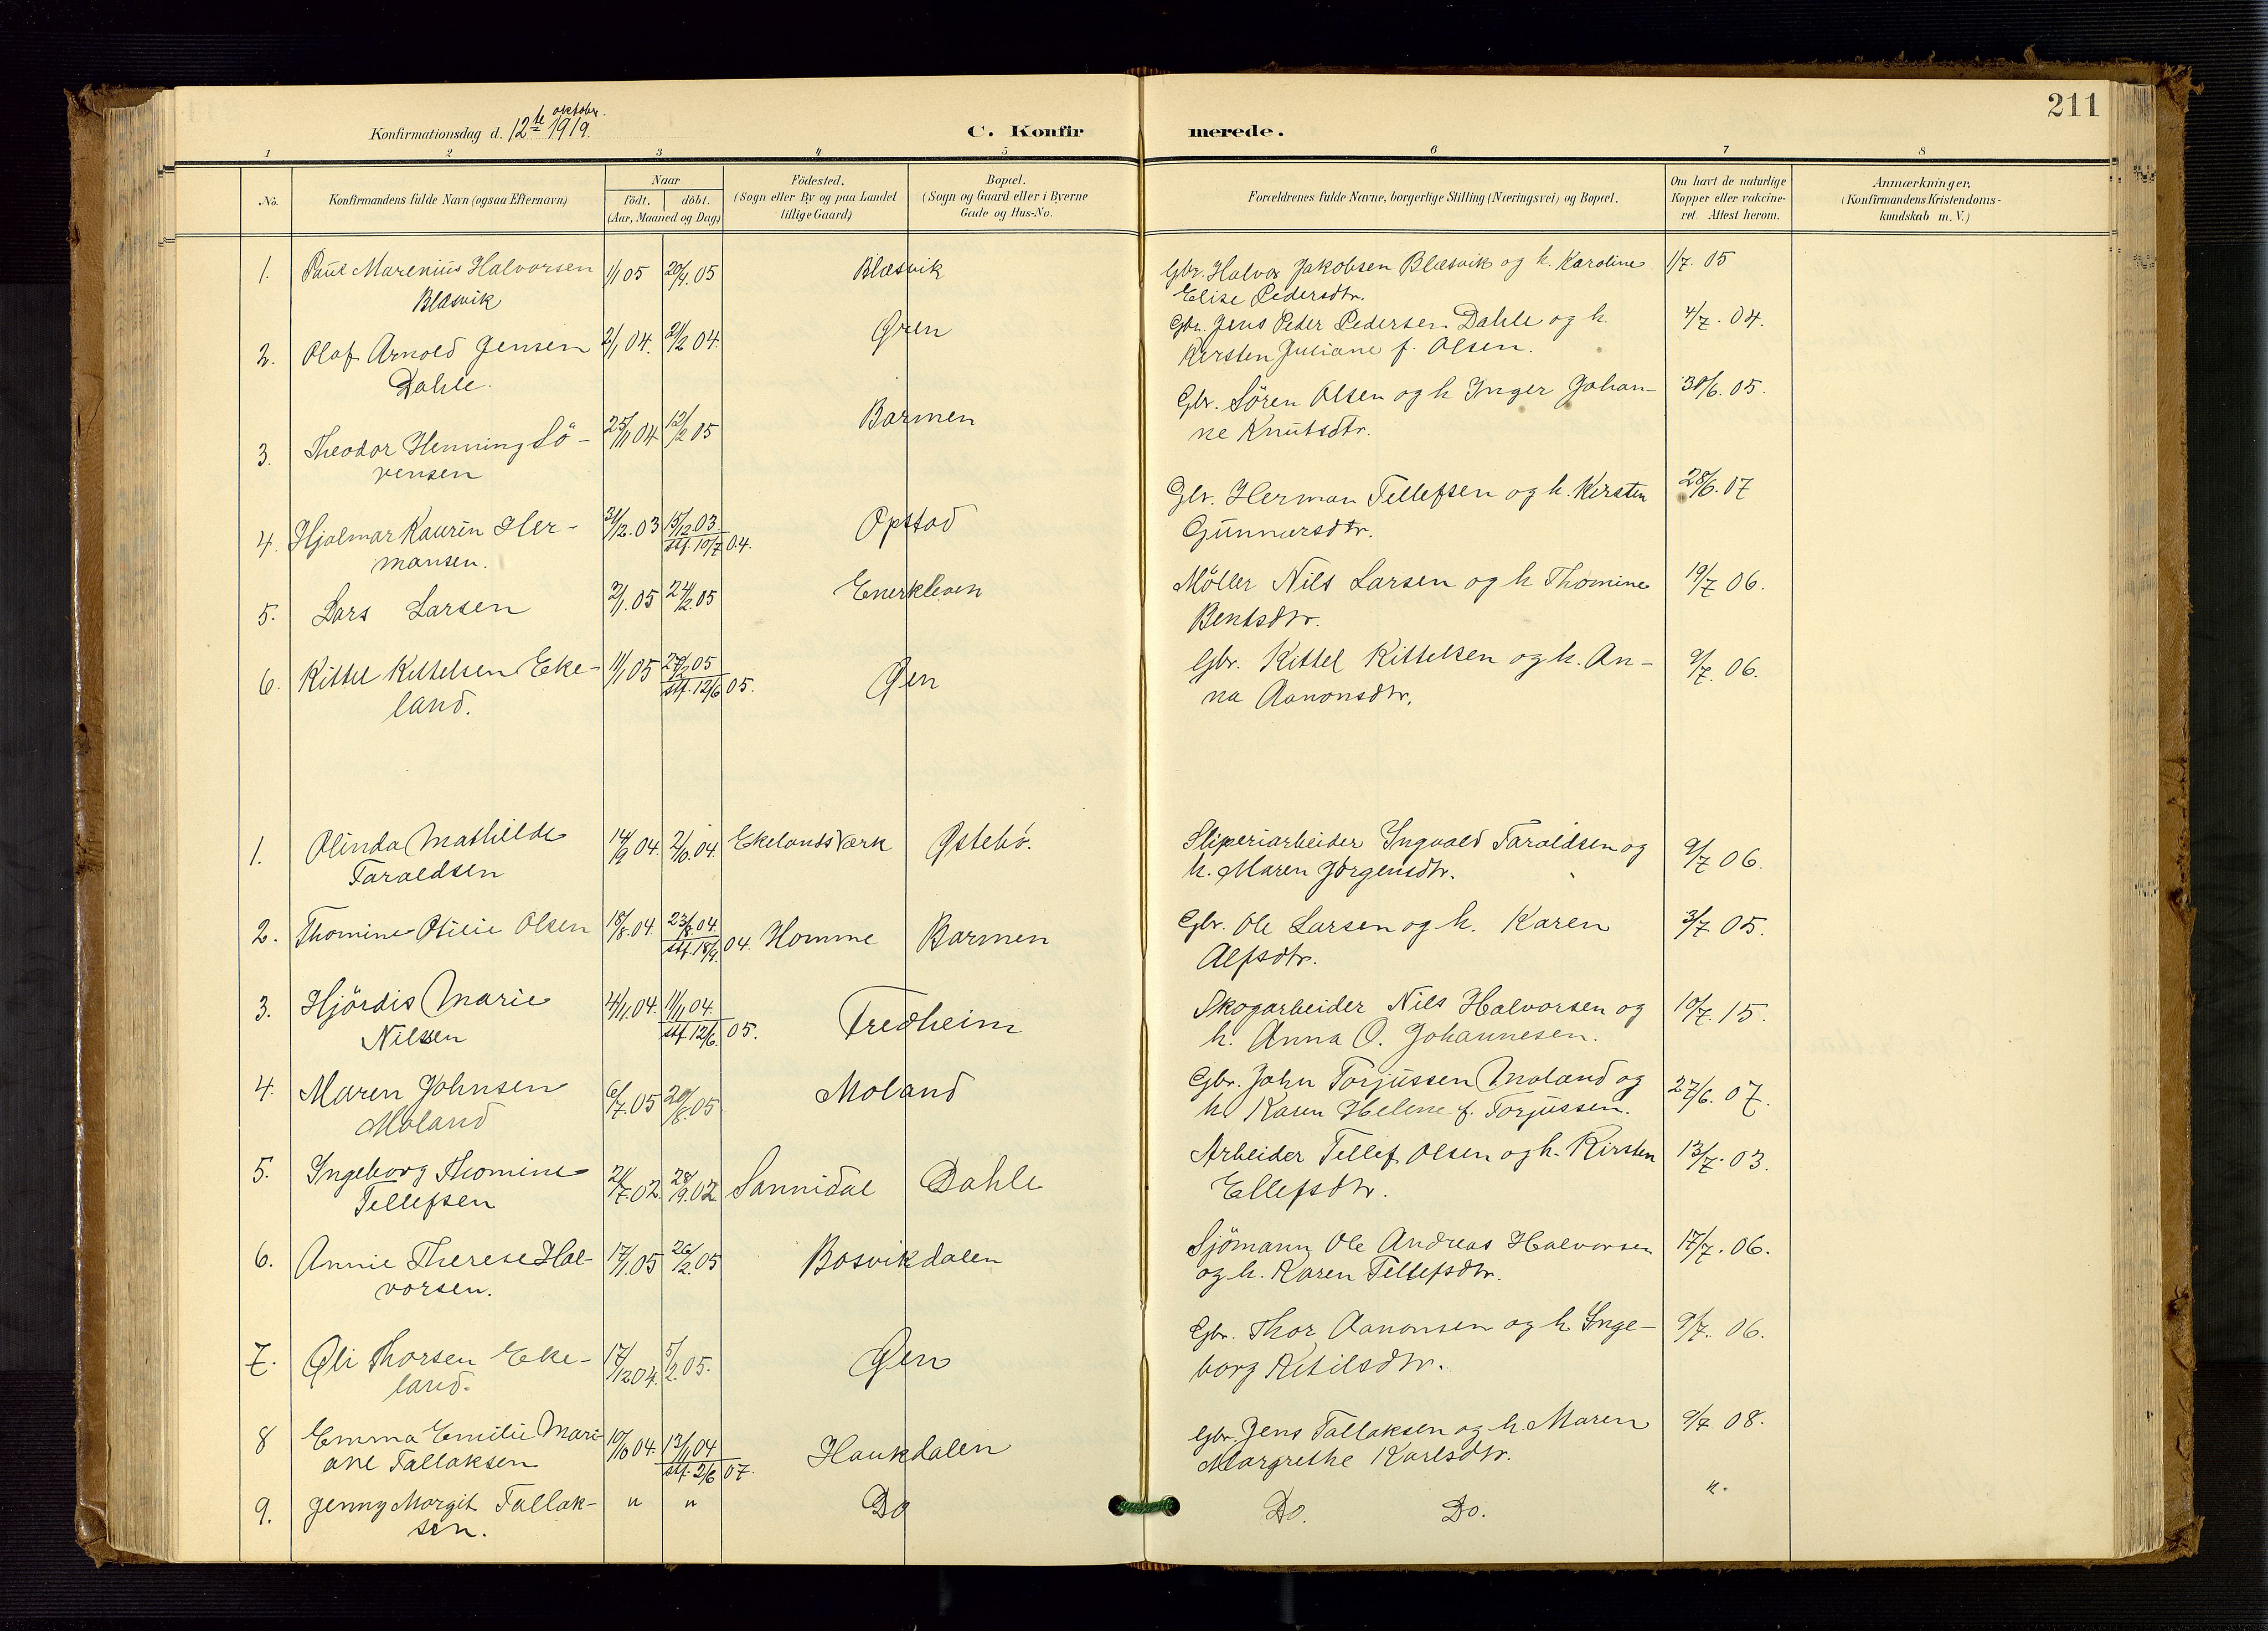 211
oktober.
Konfirmationsdag d. 12te 1919.
C. Konfir
merede.
1 2 3 4 5 6 7 8
No.
Konfirmandens fulde Navn (ogsaa Efternavn)
Naar
födt. döbt.
(Aar, Maaned og Dag)
Födested.
(Sogn eller By og paa Landet
tillige Gaard)
Bopæl.
(Sogn og Gaard eller i Byerne
Gade og Hus-No.
Forældrenes fulde Navne, borgerlige Stilling (Næringsvei) og Bopæl.
Om havt de naturlige
Kopper eller vakcine-
ret. Attest herom.
Anmærkninger,
(Konfirmandens Kristendoms-
kundskab m. V.)
1. Paul Marenius Halvorsen 1/1 05 20/4. 05 Blæsvik Gbr. Halvor Jakobsen Blæsvik og h. Karoline 1/7. 05
Blæsvik Elise Pedersdtr.
2. Olaf Arnold Jensen 2/1 04. 21/2 04. Øren Gbr. Jens Peder Pedersen Dahle og h. 4/7. 04.
Dahle. Kirsten Juliane f. Olsen.
3. Theodor Henning Sö- 25/11 04 12/2 05 Barmen Gbr. Sören Olsen og h Inger Johan- 30/6. 05.
rensen ne Knutsdtr.
4. Hjalmar Kaurin Her- 31/12. 03 15/12 03. Opstad Gbr. Herman Tellefsen og h. Kirsten 28/6. 07
mansen. stf. 10/7 04. Gunnarsdtr.
5. Lars Larsen 2/1. 05 24/2. 05 Enerkleven Møller Nils Larsen og h Thomine 19/7 06.
Bentsdtr.
6. Kittel Kittelsen Eke- 11/1 05 27/2 05 Øen Gbr. Kittel Kittelsen og h. An- 9/7. 06.
land. stf. 12/6 05. na Aanonsdtr.
1. Olinda Mathilde 14/9 04. 2/10. 04. Ekelands Værk Østebö. Sliperiarbeider Ingvald Taraldsen og 9/7 06.
Taraldsen h. Maren Jørgensdtr.
2. Thomine Otilie Olsen 18/8. 04. 23/8. 04. Homme Barmen Gbr. Ole Larsen og h. Karen 3/7 05.
stf. 18/9. 04. Alfsdtr.
3. Hjördis Marie 4/11. 04. 11/11 04. Fredheim Skogarbeider Nils Halvorsen og 10/7. 15.
Nilsen stf. 12/6. 05. h. Anna O. Johannesen.
4. Maren Johnsen 6/7. 05 20/8. 05 Moland Gbr. John Torjussen Moland og 27/6. 07.
Moland h. Karen Helene f. Torjussen.
5. Ingeborg Thomine 21/7. 02. 28/9. 02 Sannidal Dahle Arbeider Tellef Olsen og h. Kirsten 13/7. 03.
Tellefsen Ellefsdtr.
6. Annie Therese Hal- 17/1. 05 26/2. 05 Bosvikdalen Sjömann Ole Andreas Halvorsen 17/7. 06.
vorsen. og h. Karen Tellefsdtr.
7. Øli Thorsen Eke- 17/12 04. 5/2. 05. Øen Gbr. Thor Aanonsen og h. Inge- 9/7. 06.
land. borg Ketilsdtr.
8 Emma Emilie Mari- 10/10 04. 13/11 04 Haukdalen Gbr. Jens Tallaksen og h. Maren 9/7 08.
ane Tallaksen stf. 2/6 07. Margrethe Karlsdtr.
9. Jenny Margit Tallak- " " Do Do. Do. ".
sen.